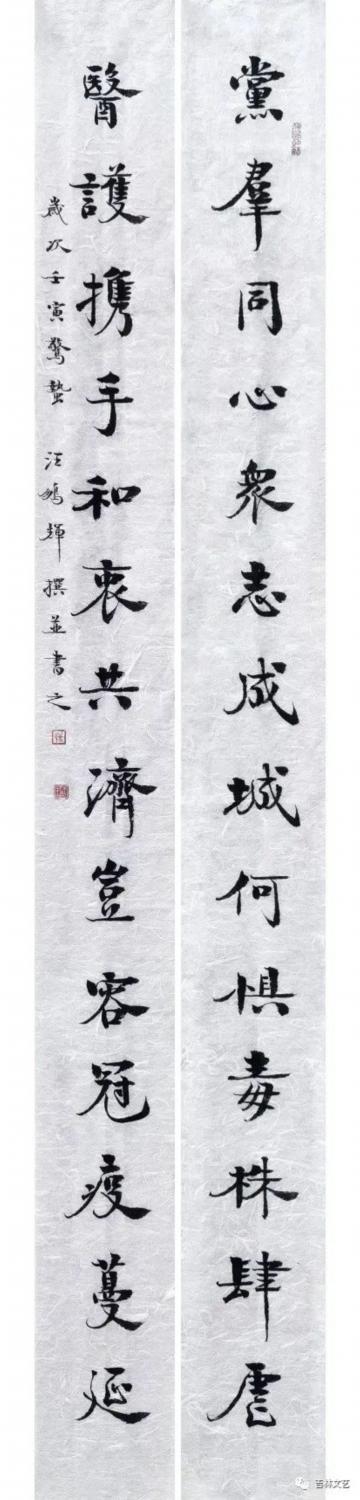 黨羣同心衆志成城何惧毒株肆虐
醫護携手和衷共濟豈容冠疫蔓延
歲次壬寅驚蟄 汪鴻輝撰並書之
吉林文艺